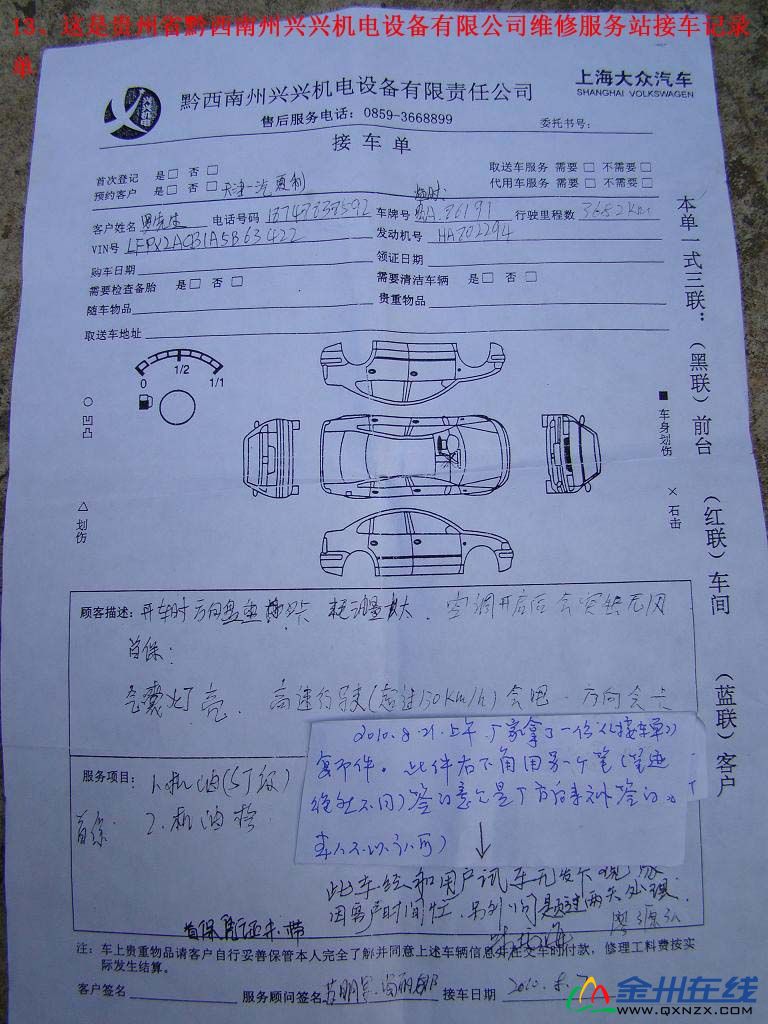 13、这是贵州省黔西南州兴兴机电设备有限公司维修服务站接车记录
单
兴兴机电
黔西南州兴兴机电设备有限责任公司
上海大众汽车
SHANGHAI VOLKSWAGEN
售后服务电话：0859-3668899
委托书号：
接车单
首次登记 是□ 否□
取送车服务 需要□ 不需要□
预约客户 是□ 否□ 天津一汽夏利
代用车服务 需要□ 不需要□
临时
客户姓名 电话号码 车牌号 A.86191 行驶里程数 3682km
VIN号 发动机号 HA202294
购车日期 领证日期
需要检查备胎 是□ 否□ 需要清洁车辆 是□ 否□
随车物品 贵重物品
取送车地址
0 1/2 1/1
○凹凸
△划伤
■车身划伤
×石击
本单一式三联：（黑联）前台 （红联）车间 （蓝联）客户
顾客描述：开车时方向盘 耗油量大．空调开启后会突然无风
首保：
气囊灯亮．高速行驶(超过130km/h)会 ．方向会
2010.8.21.上午．厂家拿了一份《接车单》
复印件。此件右下角用另一个笔(笔迹
绝然不同)签的 签的。
本人不认可)
服务项目：1.机油(SJ级)
首保： 2.机油格
此车经和用户试车无 现象
因客户时间忙．
首保凭证未带
注：车上贵重物品请客户自行妥善保管本人完全了解并同意上述车辆信息并在交车时付款，修理工料费按实
际发生结算。
客户签名 服务顾问签名 接车日期 2010.8.7
金州在线
WWW.QXNZX.COM